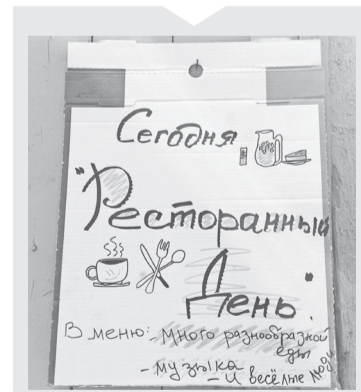 Сегодня
"Ресторанный
День"
В меню: - много разнообразной
еды
- музыка
- и весёлые люди